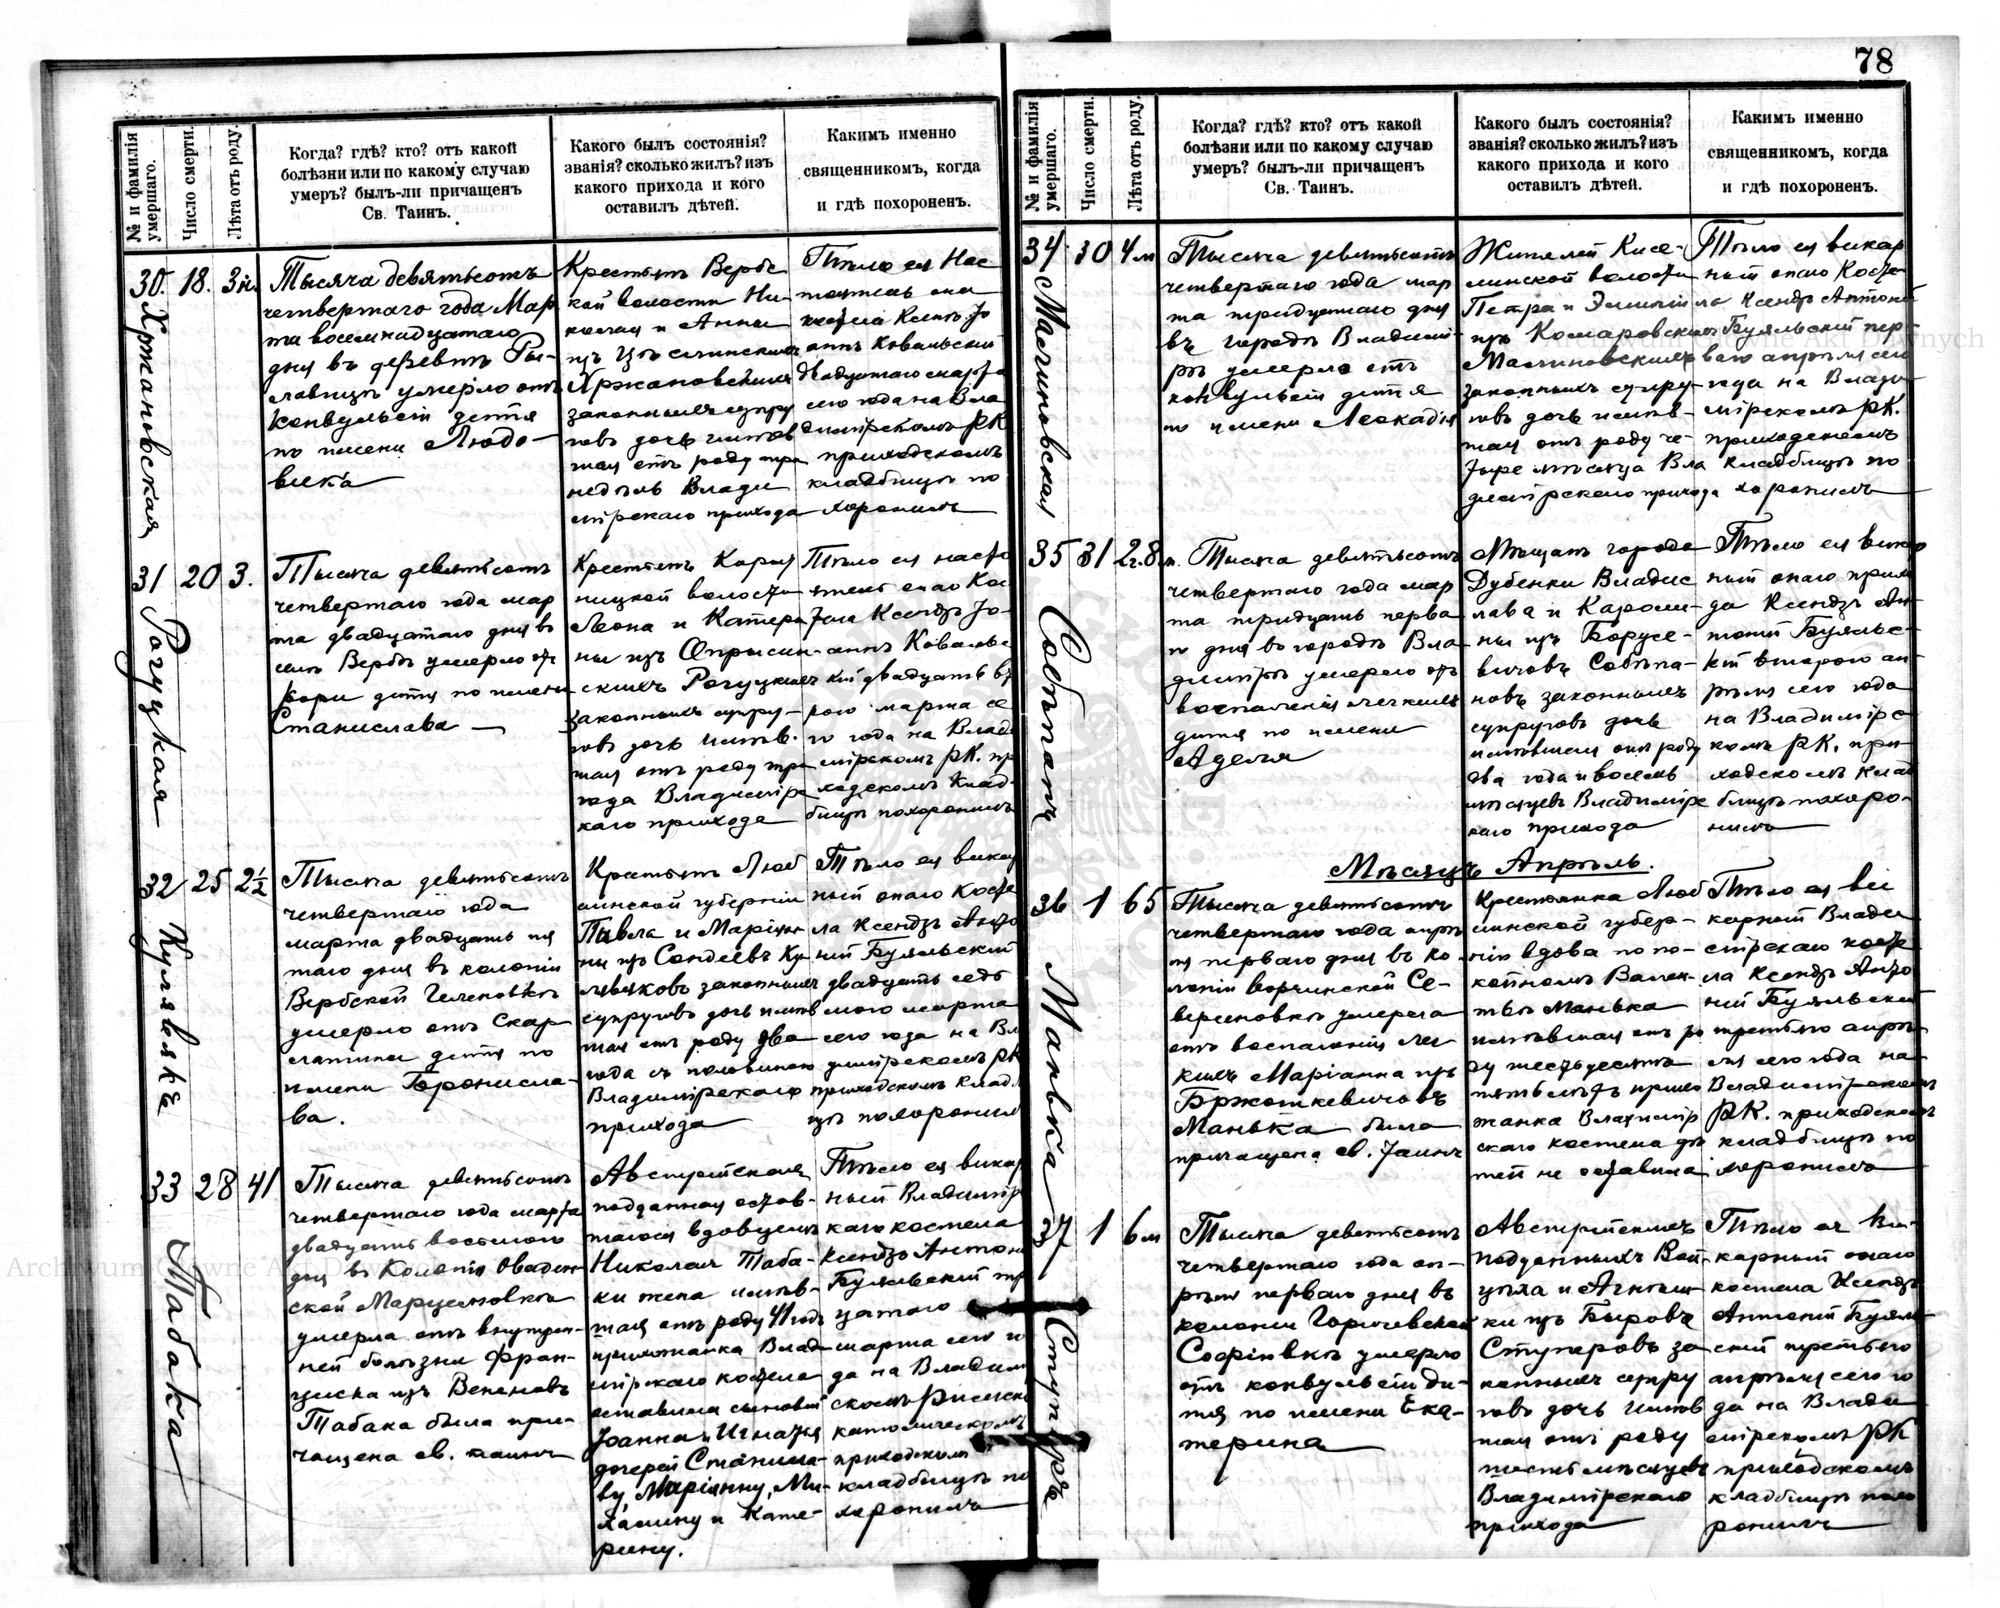 78
№ и фамилія умершаго.
Число смерти.
Лѣта отъ роду.
Когда? гдѣ? кто? отъ какой
болѣзни или по какому случаю
умеръ? былъ-ли причащенъ
Св. Таинъ.
Какого былъ состоянія?
званія? сколько жилъ? изъ
какого прихода и кого
оставилъ дѣтей.
Какимъ именно
священникомъ, когда
и гдѣ похороненъ.
30. Хржановская
18.
3 н.
Тысяча девятьсотъ
четвертаго года Мар
та восемнадцатаго
дня въ деревнѣ
умерло отъ
конвульсій дитя
по имени Людо-
вика
Крестьянъ Верб
ской волости Ни-
колая и Анны
изъ
Хржановскихъ
законныхъ супру
говъ дочь имѣв
шая отъ роду три
недѣль Влади
мірскаго прихода
Тѣло ея Нас
тоятель она
го костела Ксендзъ Іо
аннъ Ковальскій
двадцатаго марта
сего года на Вла
димірскомъ РК
приходскомъ
кладбищѣ по
хоронилъ
31 Рогуцкая
20
3.
Тысяча девятьсотъ
четвертаго года мар
та двадцатаго дня въ
селѣ Вербѣ умерло отъ
кори дитя по имени
Станислава
Крестьянъ Кор
ницкой волости
Леона и Катери
ны изъ Опрысин
скихъ Рогуцкихъ
законныхъ супру-
говъ дочь имѣв-
шая отъ роду три
года Владимірс
каго прихода
Тѣло ея насто
ятель онаго Кос
тела Ксендзъ Іо-
аннъ Ковальс
кій двадцать вто
рого марта се
го года на Влад
мірскомъ РК. пр
ходскомъ Клад-
бищѣ похоронилъ
32 Кулявякъ
25
2½
Тысяча девятьсотъ
четвертаго года
марта двадцать пя
таго дня въ колоніи
Вербской Геленовкѣ
умерло отъ скар
латины дитя по
имени Бронисла-
ва.
Крестьянъ Люб
линской губерніи
Павла и Маріан
ны изъ Сондеевъ Ку
лявяковъ законныхъ
супруговъ дочь имѣв
шая отъ роду два
года съ половиною
Владимірскаго
прихода
Тѣло ея викар
ный онаго Косте
ла Ксендзъ Анто
ній Буяльскій
двадцать седь
мого марта
сего года на Вл
димірскомъ РК
приходскомъ кладб
щѣ похоронилъ
33 Табака
28
41
Тысяча девятьсотъ
четвертаго года марта
двадцать восьмого
дня въ Колоніи Оваден-
ской Марцелювкѣ
умерла отъ внутрен-
ней болѣзни Фран-
циска изъ
Табака была при-
чащена св. таинъ
Австрійская
подданная остав-
шагося вдовцемъ
Николая Таба-
ки жена имѣв-
шая отъ роду 41 годъ
прихожанка Влад
мірскаго костела
оставила сыновей
Іоанна и Игнатія
дочерей Станисла-
ву, Маріанну, Ми-
халину и Кате-
рину.
Тѣло ея викар
ный Владимір
каго костела
Ксендзъ Антоні
Буяльскій тр
цатого
марта сего го
да на Владим
скомъ Римско
католическомъ
приходскомъ
кладбищѣ по
хоронилъ
№ и фамилія умершаго.
Число смерти.
Лѣта отъ роду.
Когда? гдѣ? кто? отъ какой
болѣзни или по какому случаю
умеръ? былъ-ли причащенъ
Св. Таинъ.
Какого былъ состоянія?
званія? сколько жилъ? изъ
какого прихода и кого
оставилъ дѣтей.
Какимъ именно
священникомъ, когда
и гдѣ похороненъ.
34 Малиновская
30
4 м
Тысяча девятьсотъ
четвертаго года мар
та тридцатаго дня
въ городѣ Владимі-
рѣ умерло отъ
конвульсій дитя
по имени Леокадія
Жителей Кисе-
линской волости
Петра и Эмиліи
изъ Комаровскихъ
Малиновскихъ
законныхъ супру-
говъ дочь имѣв-
шая отъ роду че-
тыре мѣсяца Вла
димірскаго прихода
Тѣло ея викар
ный онаго Косте
ла Ксендзъ Антоній
Буяльскій пер-
ваго апрѣля сего
года на Влади
мірскомъ РК.
приходскомъ
кладбищѣ по
хоронилъ
35 Собѣпанъ
31
2г. 8м.
Тысяча девятьсотъ
четвертаго года мар
та тридцать перва
го дня въ городѣ Вла
димірѣ умерло отъ
воспаленія легкихъ
дитя по имени
Аделя
Мѣщанъ города
Дубенки Владис
лава и Кароли-
ны изъ Борусе-
вичовъ Собѣпа-
новъ законныхъ
супруговъ дочь
имѣвшая отъ роду
два года и восемь
мѣсяцевъ Владимірс
каго прихода
Тѣло ея викар
ный онаго прихо
да Ксендзъ Ан-
тоній Буяльс-
кій второго ап
рѣля сего года
на Владимірс
комъ РК. при-
ходскомъ клад
бищѣ похоро-
нилъ
Мѣсяцъ Апрѣль.
36 Манька
1
65
Тысяча девятьсотъ
четвертаго года апрѣ
ля перваго дня въ ко
лоніи Ворчинской Се-
вериновкѣ умерла
отъ воспаленія лег
кихъ Маріанна изъ
Бржошкевичовъ
Манька была
причащена св. Таинъ
Крестьянка Люб
линской губер-
ніи вдова по по-
койномъ Вален-
тѣ Манька
имѣвшая отъ ро
ду шестьдесятъ
пять лѣтъ прихо
жанка Владимір
скаго костела дѣ
тей не оставила
Тѣло ея ви
карный Влади
мірскаго косте
ла Ксендзъ Анто
ній Буяльскій
третьяго апрѣ-
ля сего года на
Владимірскомъ
РК. приходскомъ
кладбищѣ по
хоронилъ
37 Ступеръ
1
6 м
Тысяча девятьсотъ
четвертаго года ап-
рѣля перваго дня въ
колоніи
Софіювкѣ умерло
отъ конвульсій ди-
тя по имени Ека-
терина
Австрійскихъ
подданныхъ Вой-
цѣха и Агнѣш-
ки изъ Быровъ
Ступеровъ за
конныхъ супру
говъ дочь имѣв
шая отъ роду
шесть мѣсяцевъ
Владимірскаго
прихода
Тѣло ея ви-
карный онаго
костела Ксендзъ
Антоній Буяль-
скій третьяго
апрѣля сего го
да на Влади
мірскомъ РК
приходскомъ
кладбищѣ похо
ронилъ
Archiwum Główne Akt Dawnych
Archiwum Główne Akt Dawnych